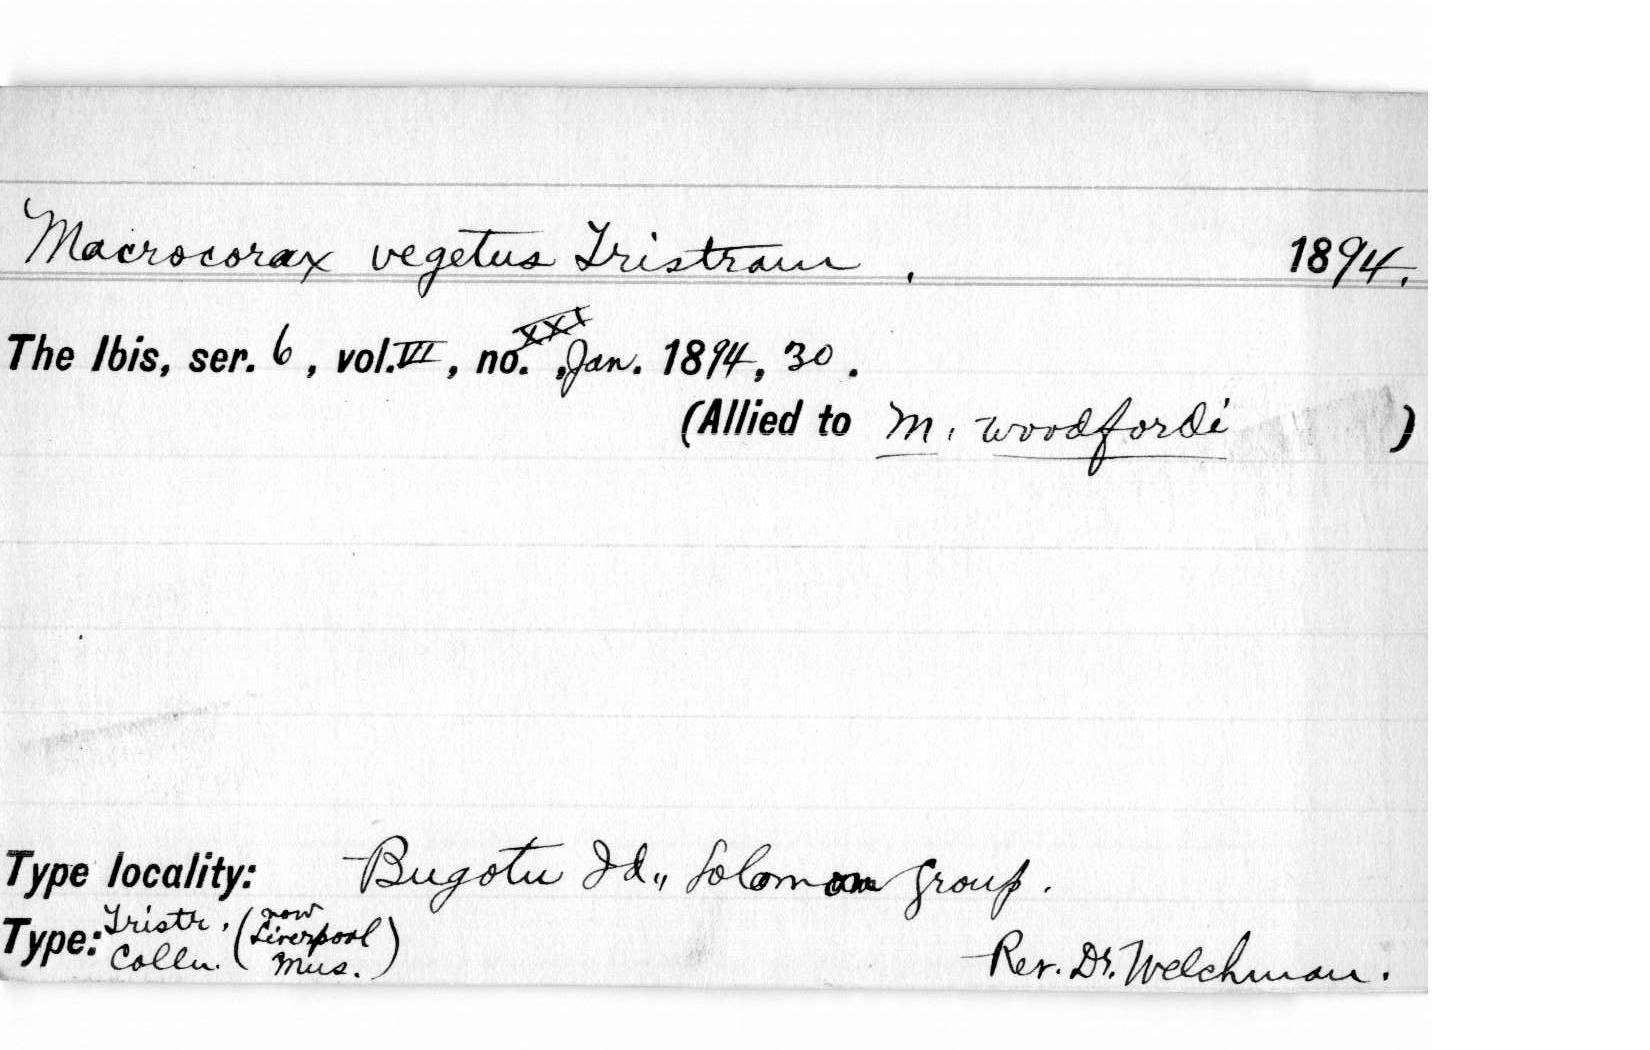 Macrocorax vegetus Tristram . 1894.
The Ibis, ser. 6, vol. VI, no. XXI, Jan. 1894, 30.
(Allied to M. woodfordi )
Type locality: Bugotu Id., Solomon Group.
Type: Tristr. Colln. (now Liverpool Mus.) Rev. Dr. Welchman.